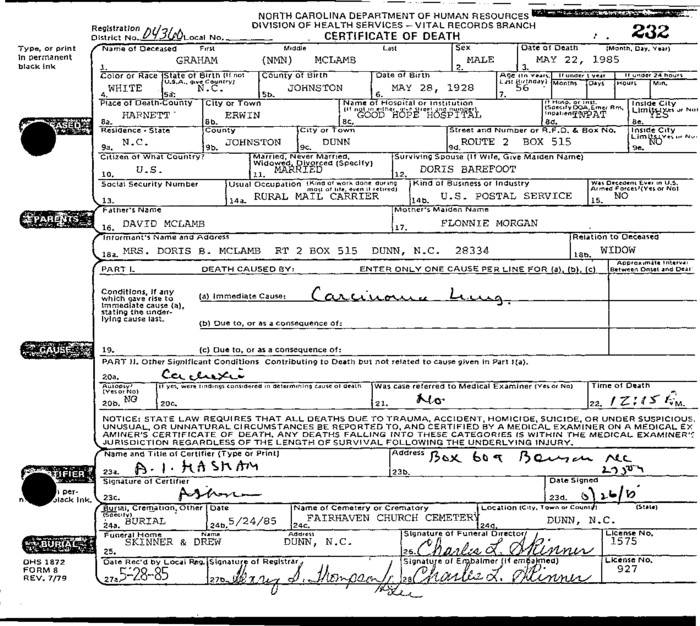 NORTH CAROLINA DEPARTMENT OF HUMAN RESOURCES
DIVISION OF HEALTH SERVICES – VITAL RECORDS BRANCH
Registration District No. 04360 Local No. CERTIFICATE OF DEATH 232
Type, or print in permanent black ink
Name of Deceased First Middle Last Sex Date of Death (Month, Day, Year)
1. GRAHAM (NMN) MCLAMB 2. MALE 3. MAY 22, 1985
Color or Race State of Birth (If not U.S.A., give Country) County of Birth Date of Birth Age (In Years, Last Birthday) If under 1 year Months Days If under 24 hours Hours Min.
4. WHITE 5a. N.C. 5b. JOHNSTON 6. MAY 28, 1928 7. 56
Place of Death-County City or Town Name of Hospital or Institution (If not in either, give street and number) If Hosp. or Inst. (Specify DOA, Emer Rm, Inpatient) Inside City Limits (Yes or No)
8a. HARNETT 8b. ERWIN 8c. GOOD HOPE HOSPITAL 8d. INPAT 8e. YES
Residence - State County City or Town Street and Number or R.F.D. & Box No. Inside City Limits (Yes or No)
9a. N.C. 9b. JOHNSTON 9c. DUNN 9d. ROUTE 2 BOX 515 9e. NO
Citizen of What Country? Married, Never Married, Widowed, Divorced (Specify) Surviving Spouse (If Wife, Give Maiden Name)
10. U.S. 11. MARRIED 12. DORIS BAREFOOT
Social Security Number Usual Occupation (Kind of work done during most of life, even if retired) Kind of Business or Industry Was Decedent Ever in U.S. Armed Forces? (Yes or No)
13. 14a. RURAL MAIL CARRIER 14b. U.S. POSTAL SERVICE 15. NO
PARENTS
Father's Name Mother's Maiden Name
16. DAVID MCLAMB 17. FLONNIE MORGAN
Informant's Name and Address Relation to Deceased
18a. MRS. DORIS B. MCLAMB RT 2 BOX 515 DUNN, N.C. 28334 18b. WIDOW
PART I. DEATH CAUSED BY: ENTER ONLY ONE CAUSE PER LINE FOR (a), (b), (c) Approximate Interval Between Onset and Death
Conditions, if any which gave rise to immediate cause (a), stating the underlying cause last.
(a) Immediate Cause: Carcinoma Lung.
(b) Due to, or as a consequence of:
CAUSE
19. (c) Due to, or as a consequence of:
PART II. Other Significant Conditions Contributing to Death but not related to cause given in Part I(a).
20a. Cachexia
Autopsy? (Yes or No) If yes, were findings considered in determining cause of death Was case referred to Medical Examiner (Yes or No) Time of Death
20b. NO 20c. 21. No 22. 12:15 P.M.
NOTICE: STATE LAW REQUIRES THAT ALL DEATHS DUE TO TRAUMA, ACCIDENT, HOMICIDE, SUICIDE, OR UNDER SUSPICIOUS,
UNUSUAL, OR UNNATURAL CIRCUMSTANCES BE REPORTED TO, AND CERTIFIED BY A MEDICAL EXAMINER ON A MEDICAL EX
AMINER'S CERTIFICATE OF DEATH. ANY DEATHS FALLING INTO THESE CATEGORIES IS WITHIN THE MEDICAL EXAMINER'S
JURISDICTION REGARDLESS OF THE LENGTH OF SURVIVAL FOLLOWING THE UNDERLYING INJURY.
Name and Title of Certifier (Type or Print) Address Box 609 Benson NC
23a. A. I. HASHAM 23b. 27504
Signature of Certifier Date Signed
23c. 23d.
Burial, Cremation, Other (Specify) Date Name of Cemetery or Crematory Location (City, Town or County) (State)
24a. BURIAL 24b. 5/24/85 24c. FAIRHAVEN CHURCH CEMETERY 24d. DUNN, N.C.
BURIAL
Funeral Home Name Address Signature of Funeral Director License No.
25. SKINNER & DREW DUNN, N.C. 26. Charles L. Skinner 1575
DHS 1872
FORM 8
REV. 7/79
Date Rec'd by Local Reg. Signature of Registrar Signature of Embalmer (If embalmed) License No.
27a. 5-28-85 27b. Thompson 28. Charles L. Skinner 927